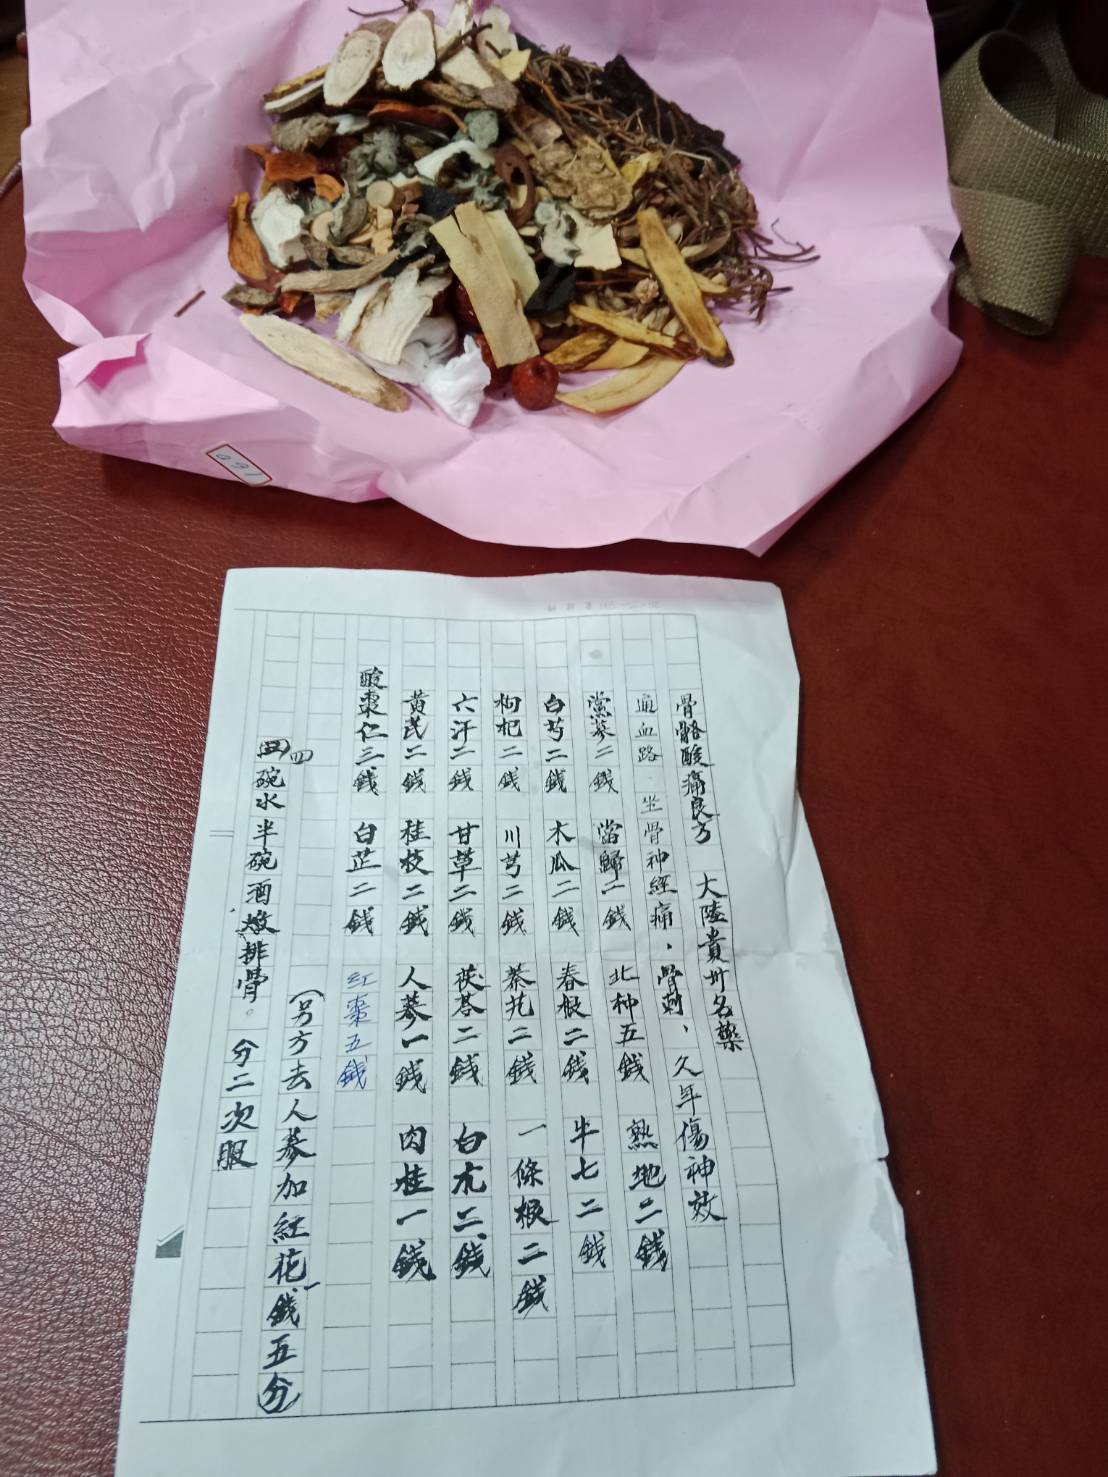 骨骼酸痛良方 大陸貴卅名藥
通血路．坐骨神經痛．骨刺、久年傷神效
黨蔘二錢 當歸二錢 北种五錢 熟地二錢
白芍二錢 木瓜二錢 春根二錢 牛七二錢
枸杞二錢 川芎二錢 蓁艽二錢 一條根二錢
六汗二錢 甘草二錢 茯苓二錢 白朮二錢
黃芪二錢 桂枝二錢 人蔘一錢 肉桂一錢
酸棗仁三錢 白芷二錢
紅棗五錢
(另方去人蔘加紅花一錢五分)
四碗水半碗酒燉排骨。分二次服